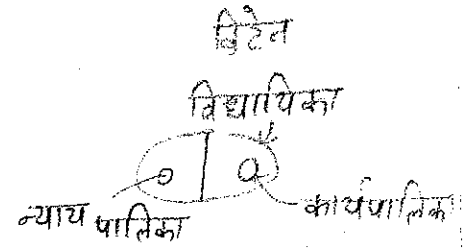 ब्रिटेन
विधायिका
न्याय पालिका
कार्यपालिका